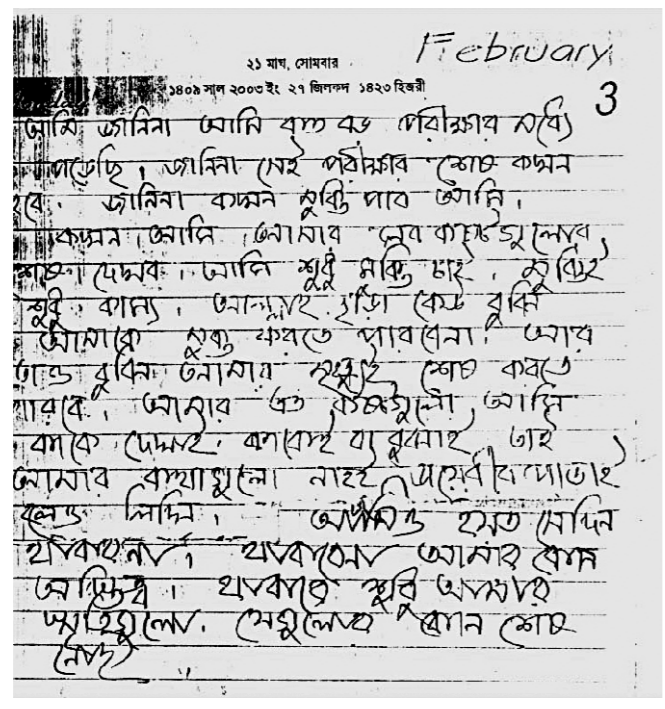 February
২১ মাঘ, সোমবার
১৪০৯ সাল ২০০৩ ইং ২৭ জিলকদ ১৪২৩ হিজরী
3
আমি জানিনা আমি কত বড় পরীক্ষার মধ্যে
পড়েছি। জানিনা সেই পরীক্ষার শেষ কখন
হবে। জানিনা কখন মুক্তি পাব আমি।
কখন আমি আমার সব কষ্টগুলোর
শেষ দেখব। আমি শুধু মুক্তি চাই। মুক্তিই
শুধু কাম্য। আল্লাহ ছাড়া কেউ বুঝি
আমাকে মুক্ত করতে পারবেনা। আর
তাও বুঝি আমার মৃত্যুই শেষ করতে
পারবে। আমার এত কষ্টগুলো আমি
কাকে দেখাই। কাকেই বা বুঝাই তাই
আমার কথাগুলো নাহয়
লিখি। আমিও হয়ত সেদিন
থাকবোনা। থাকবেনা আমার কোন
অস্তিত্ব। থাকবে শুধু আমার
স্মৃতিগুলো। সেগুলোর কোন শেষ
নেই